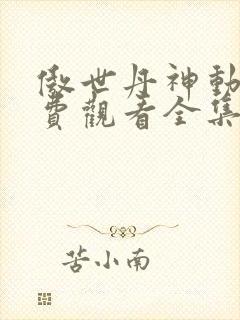 傲世丹神動
費觀看全集
苦小南